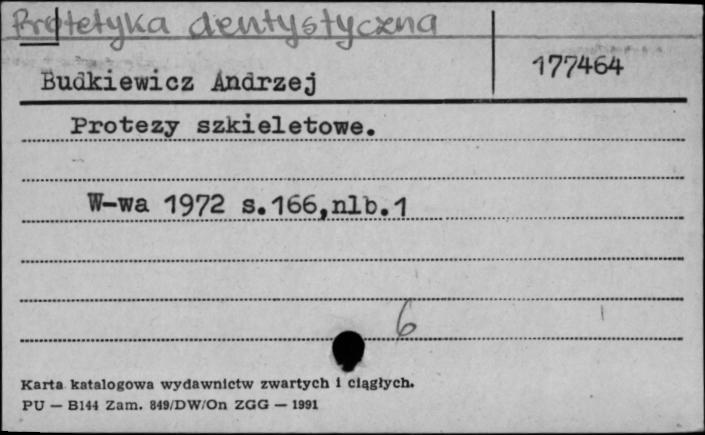 Protetyka dentystyczna
Budkiewicz Andrzej
177464
Protezy szkieletowe.
W-wa 1972 s.166,nlb.1
6
Karta katalogowa wydawnictw zwartych i ciągłych.
PU — B144 Zam. 849/DW/On ZGG — 1991